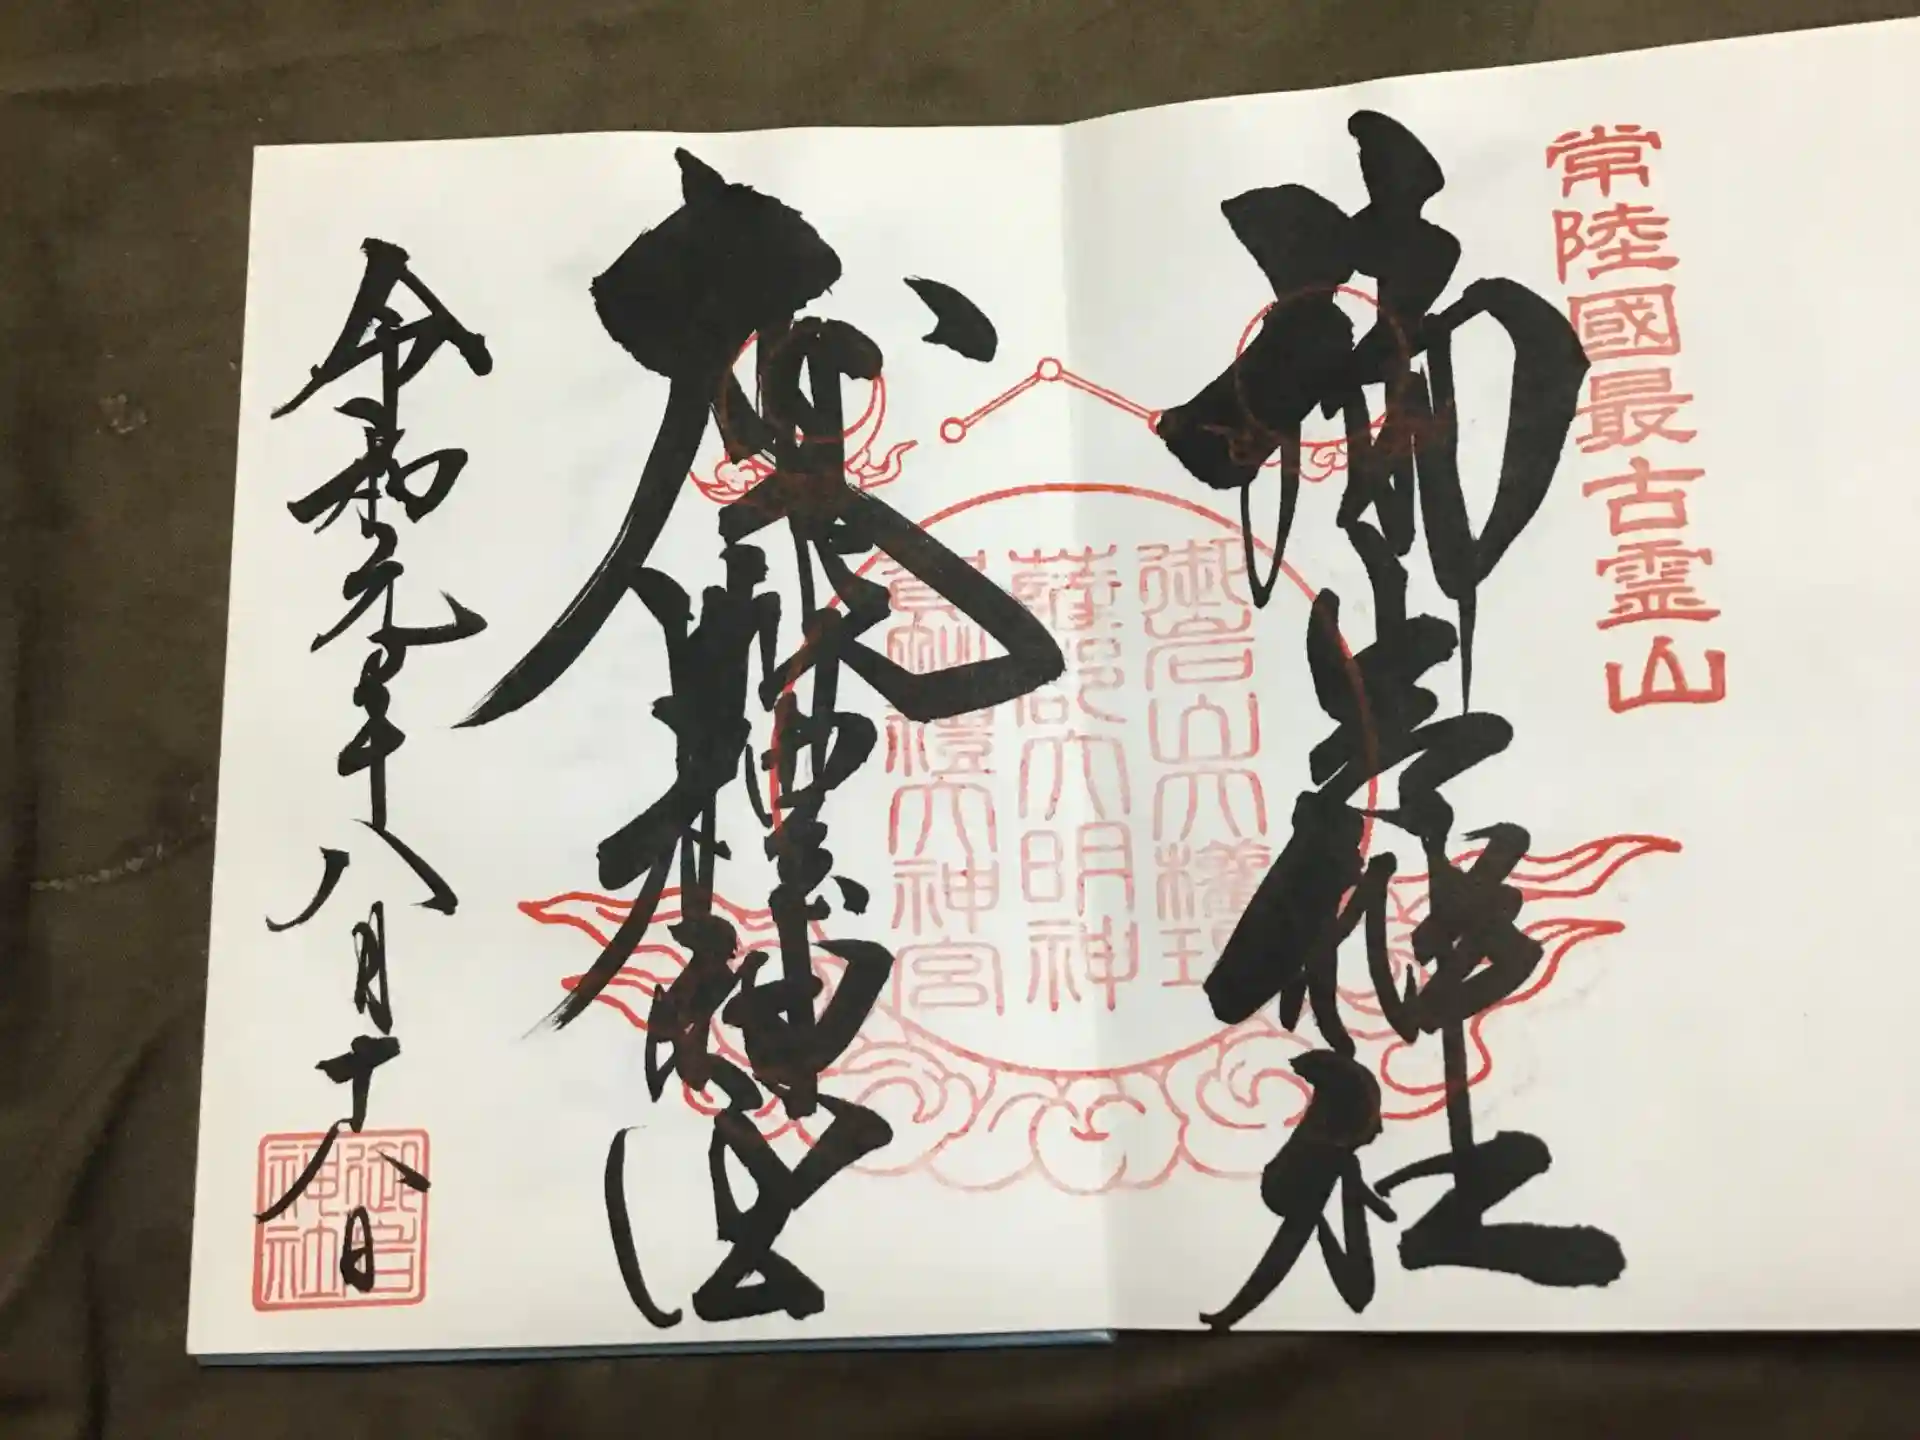 常陸國最古霊山
御岩神社
御岩山大權現
薩都大明神
禮大神宮
令和元年八月十八日
御岩神社